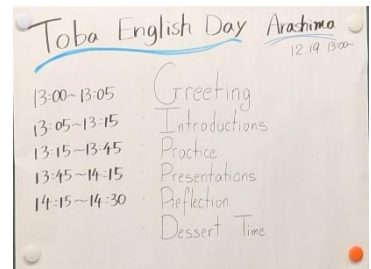 Toba English Day Arashima
12.19 13:00~
13:00~13:05 Greeting
13:05~13:15 Introductions
13:15~13:45 Practice
13:45~14:15 Presentations
14:15~14:30 Reflection
Dessert Time